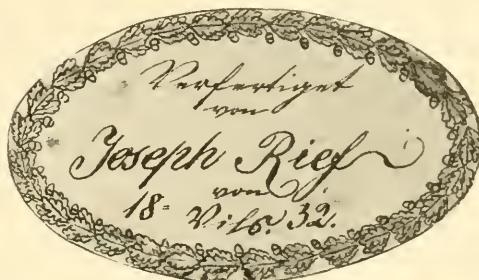 Verfertiget
von
Joseph Rief
von
18= Vils. 32.